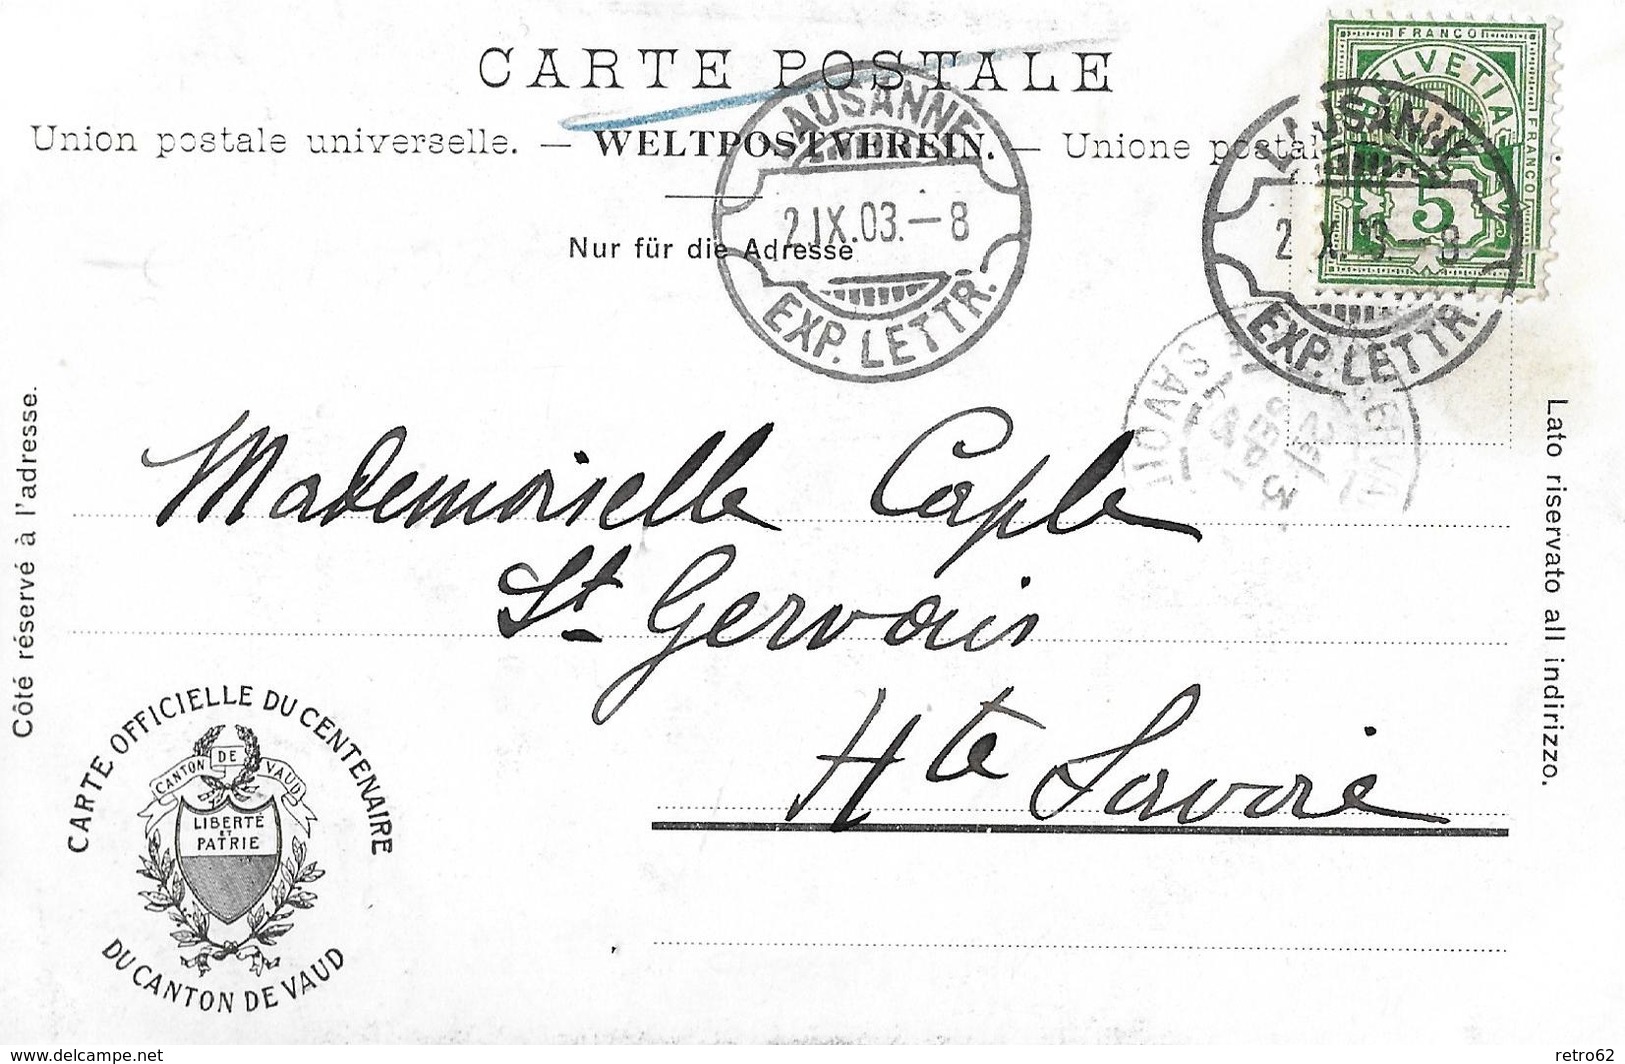 CARTE POSTALE
Union postale universelle. — WELTPOSTVEREIN. — Unione postal
Nur für die Adresse
FRANCO
HELVETIA
FRANCO
5
LAUSANNE
2.IX.03.–8
EXP. LETTR.
LAUSANNE
2 X. 3.–8
EXP. LETTR.
SAVOI
Côté réservé à l'adresse.
Lato riservato all indirizzo.
Mademoiselle Caple
St Gervais
Hte Savoie
CARTE OFFICIELLE DU CENTENAIRE
CANTON DE VAUD
LIBERTÉ
ET
PATRIE
DU CANTON DE VAUD
www.delcampe.net
retro62